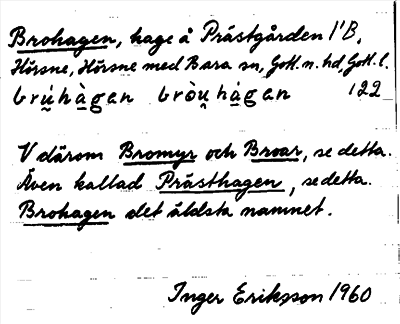 Brohagen, hage å Prästgården 1¹B,
Hörsne, Hörsne med Bara sn, Gotl. n. hd, Gotl. l.
brúhàgan bròu̯hàgan 122
V därom Bromyr och Broar, se detta.
Även kallad Prästhagen, se detta.
Brohagen det äldsta namnet.
Inger Eriksson 1960